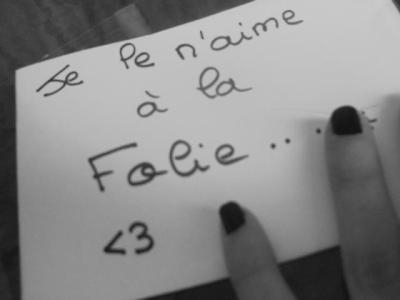 Je le n'aime
à la
Folie.....
<3